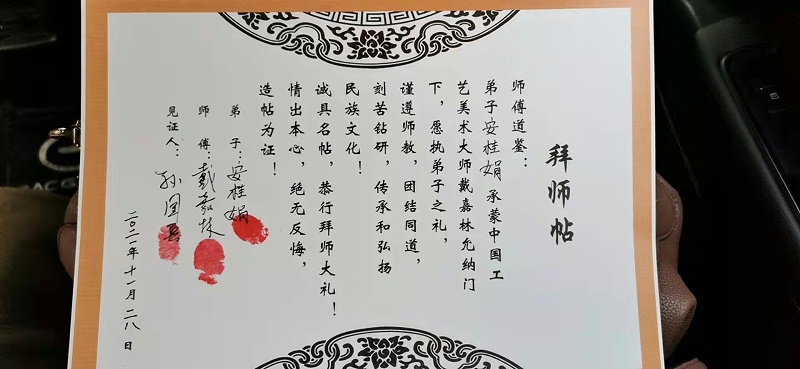 拜师帖
师傅道鉴：
弟子安桂娟承蒙中国工
艺美术大师戴嘉林允纳门
下，愿执弟子之礼，
谨遵师教，团结同道，
刻苦钻研，传承和弘扬
民族文化！
诚具名帖，恭行拜师大礼！
情出本心，绝无反悔，
造帖为证！
弟子：安桂娟
师傅：戴嘉林
见证人：孙国
二〇二一年十一月二八日